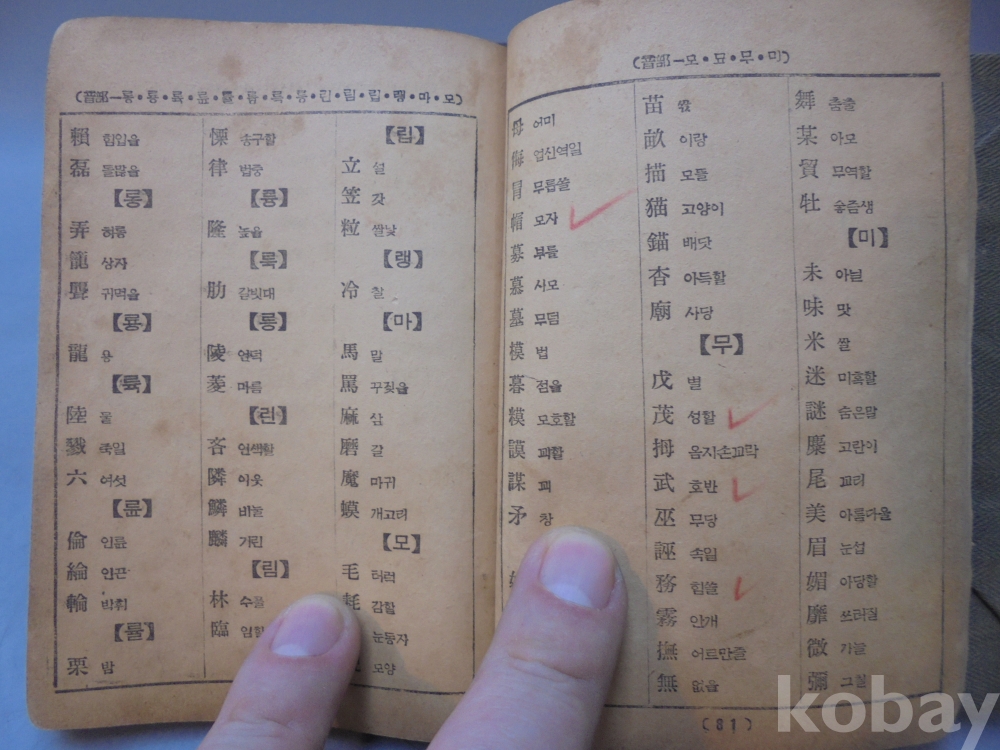 (音部—롱•룡•륙•륜•률•륭•륵•릉•린•림•립•랭•마•모)
賴 힘입을
磊 돌많을
【롱】
弄 허롱
籠 상자
聾 귀먹을
【룡】
龍 용
【륙】
陸 물
戮 죽일
六 여섯
【륜】
倫 인륜
綸 인끈
輪 박휘
【률】
栗 밤
慄 송구할
律 법중
【륭】
隆 높을
【륵】
肋 갈빗대
【릉】
陵 언덕
菱 마름
【린】
吝 인색할
隣 이웃
鱗 비늘
麟 기린
【림】
林 수풀
臨
【립】
立 설
笠 갓
粒 쌀낯
【랭】
冷 찰
【마】
馬 말
罵 꾸짖을
麻 삼
磨 갈
魔 마귀
蟆 개고리
【모】
毛 터럭
耗 감할
눈동자
모양
(音部—모•묘•무•미)
母 어미
侮 업신역일
冒 무릅쓸
帽 모자
募 부를
慕 사모
墓 무덤
模 법
暮 점을
糢 모호할
謨 꾀할
謀 꾀
矛 창
苗 싻
畝 이랑
描 모뜰
猫 고양이
錨 배닷
杳 아득할
廟 사당
【무】
戊 별
茂 성할
拇 음지손꼬락
武 호반
巫 무당
誣 속일
務 힘쓸
霧 안개
撫 어르만즐
無 없을
舞 춤출
某 아모
貿 무역할
牡 숳즘생
【미】
未 아닐
味 맛
米 쌀
迷 미혹할
謎 숨은말
麋 고란이
尾 꼬리
美 아름다울
眉 눈섭
媚 아당할
靡 쓰러질
微 가늘
彌 그칠
(81)
kobay